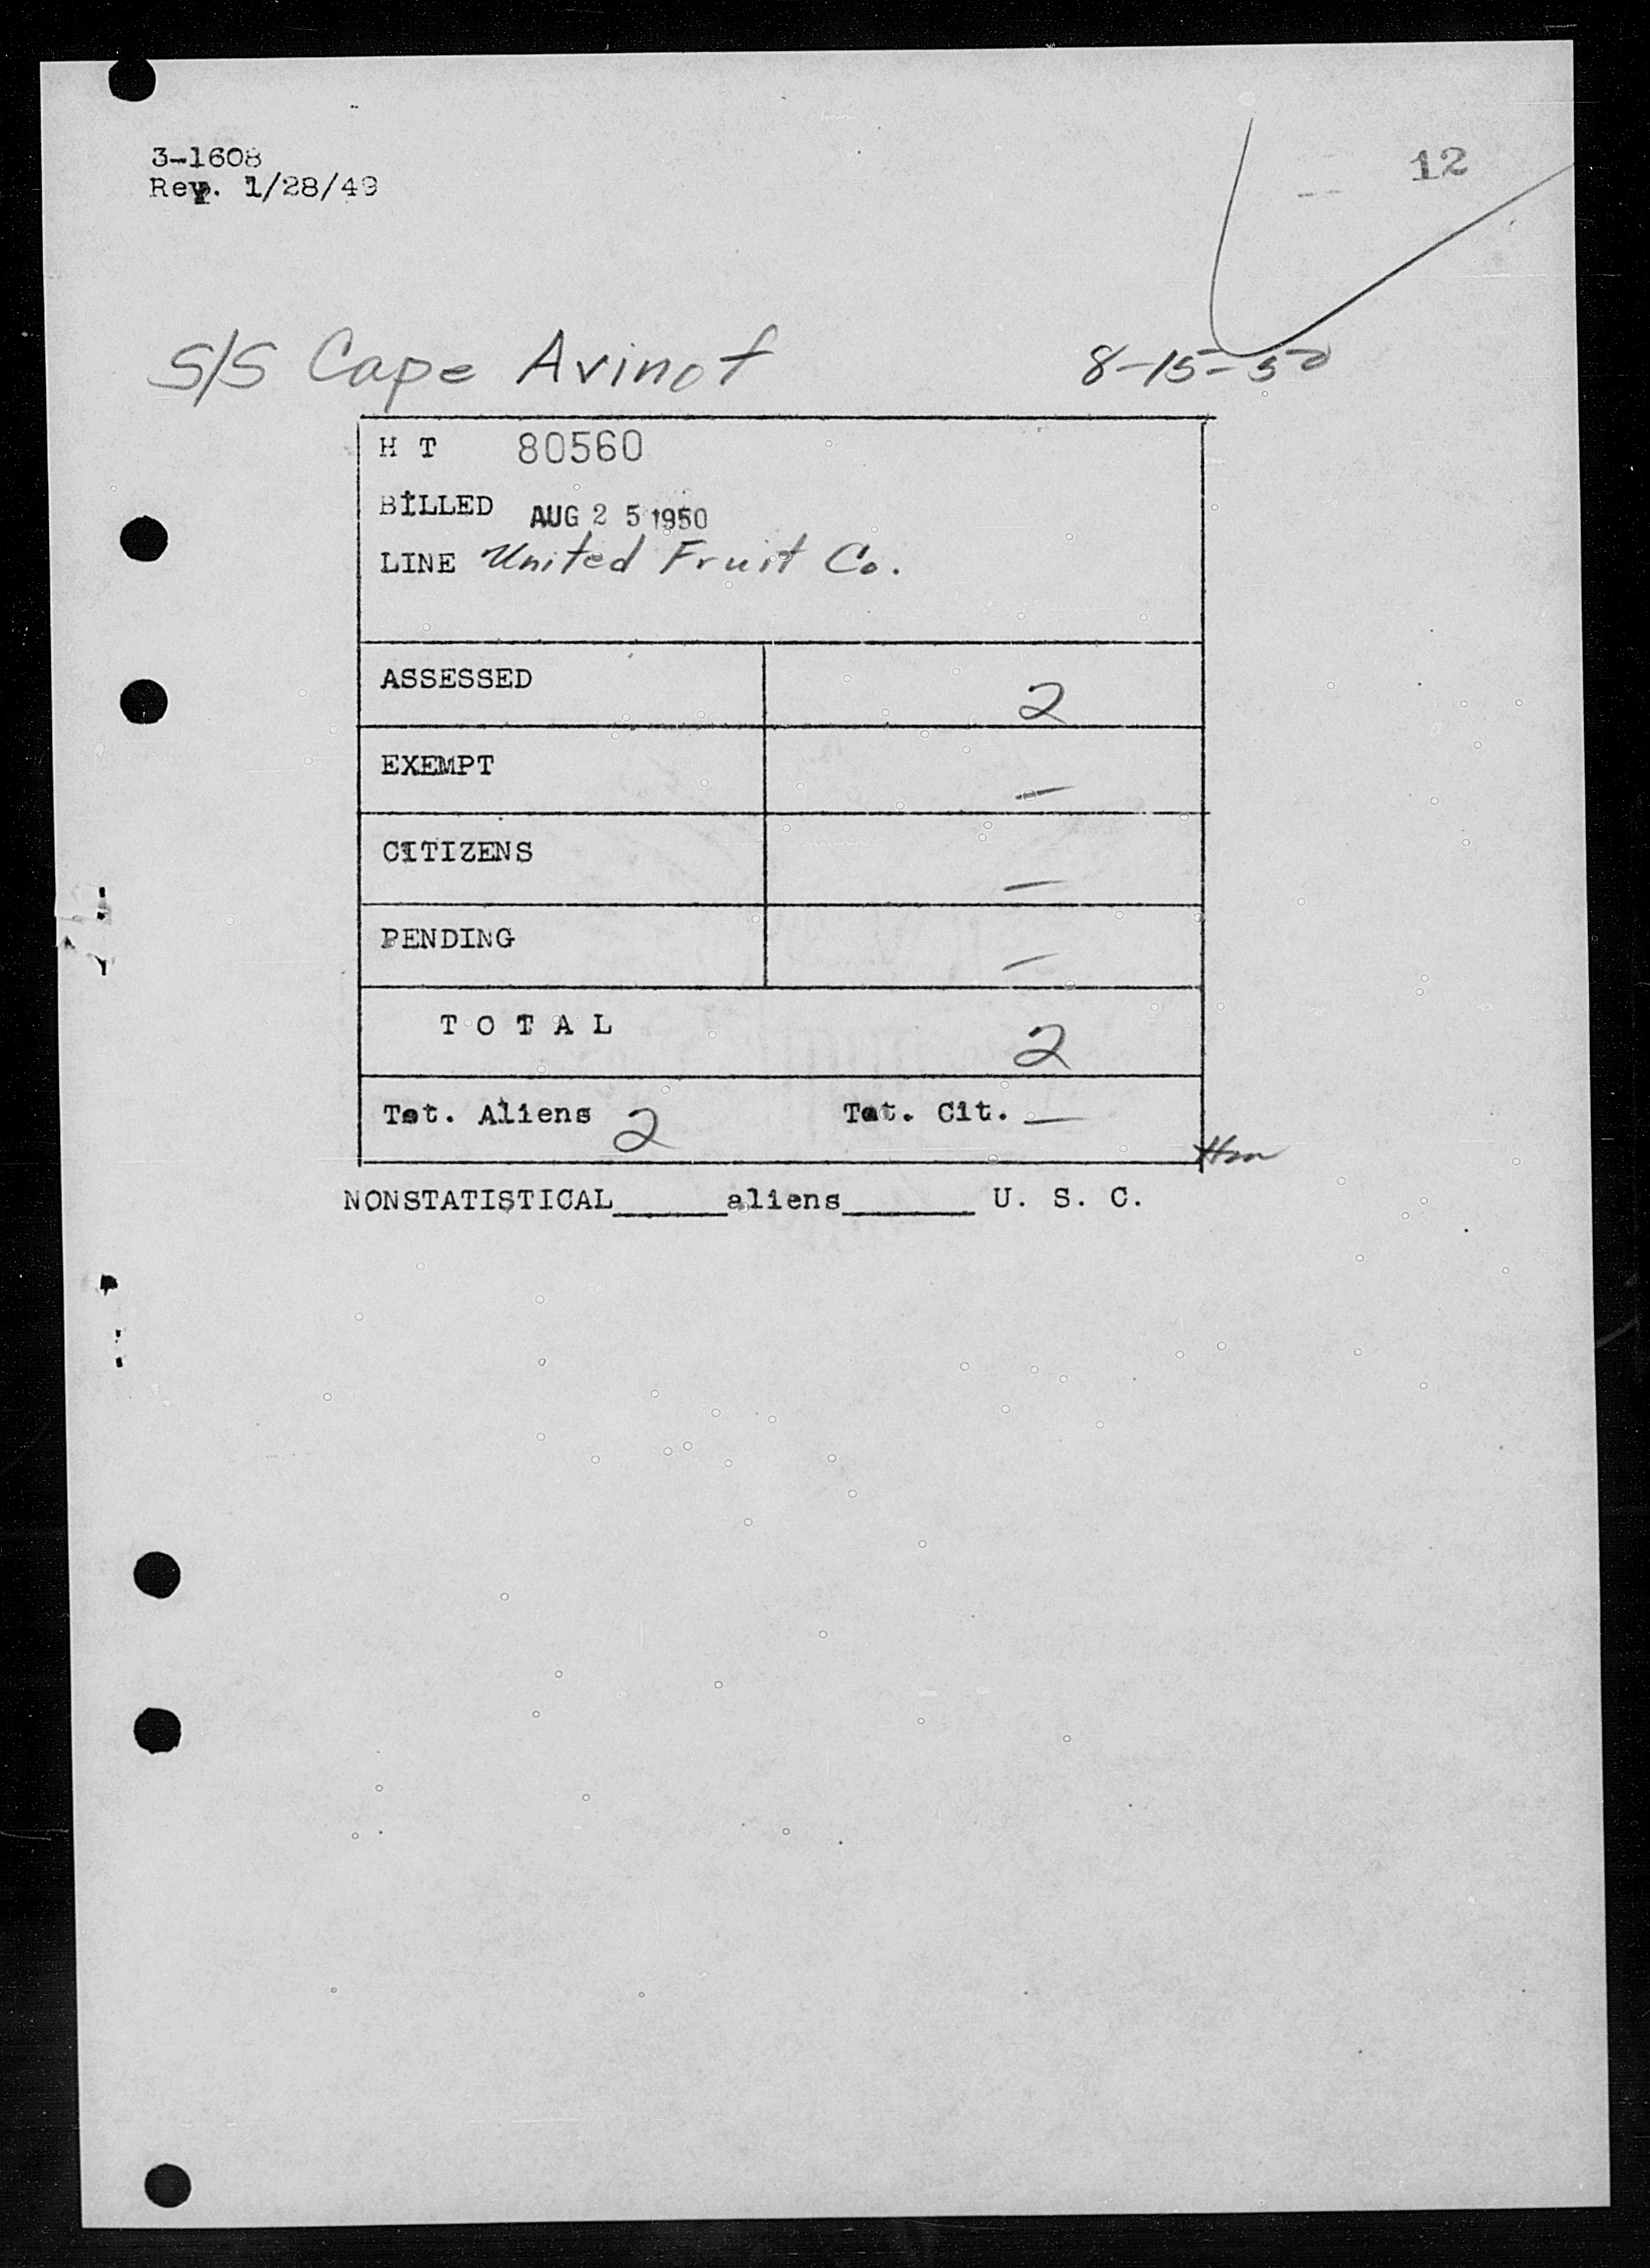 3-1608
Rev. 1/28/49
12
S/S Cape Avinof 8-15-50
H T 80560
BILLED AUG 25 1950
LINE United Fruit Co.
ASSESSED 2
EXEMPT —
CITIZENS —
PENDING —
T O T A L 2
Tot. Aliens 2 Tot. Cit. —
NONSTATISTICAL______aliens_______ U. S. C.